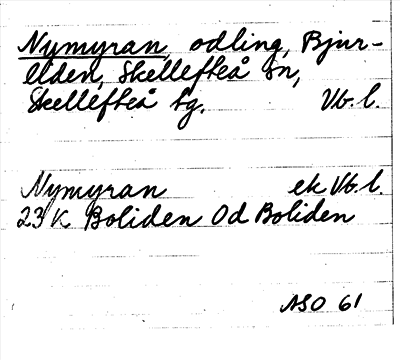 Nymyran, odling, Bjur-
elden, Skellefteå sn,
Skellefteå tg. Vb. l.
Nymyran ek Vb. l.
23 K Boliden Od Boliden
ASO 61